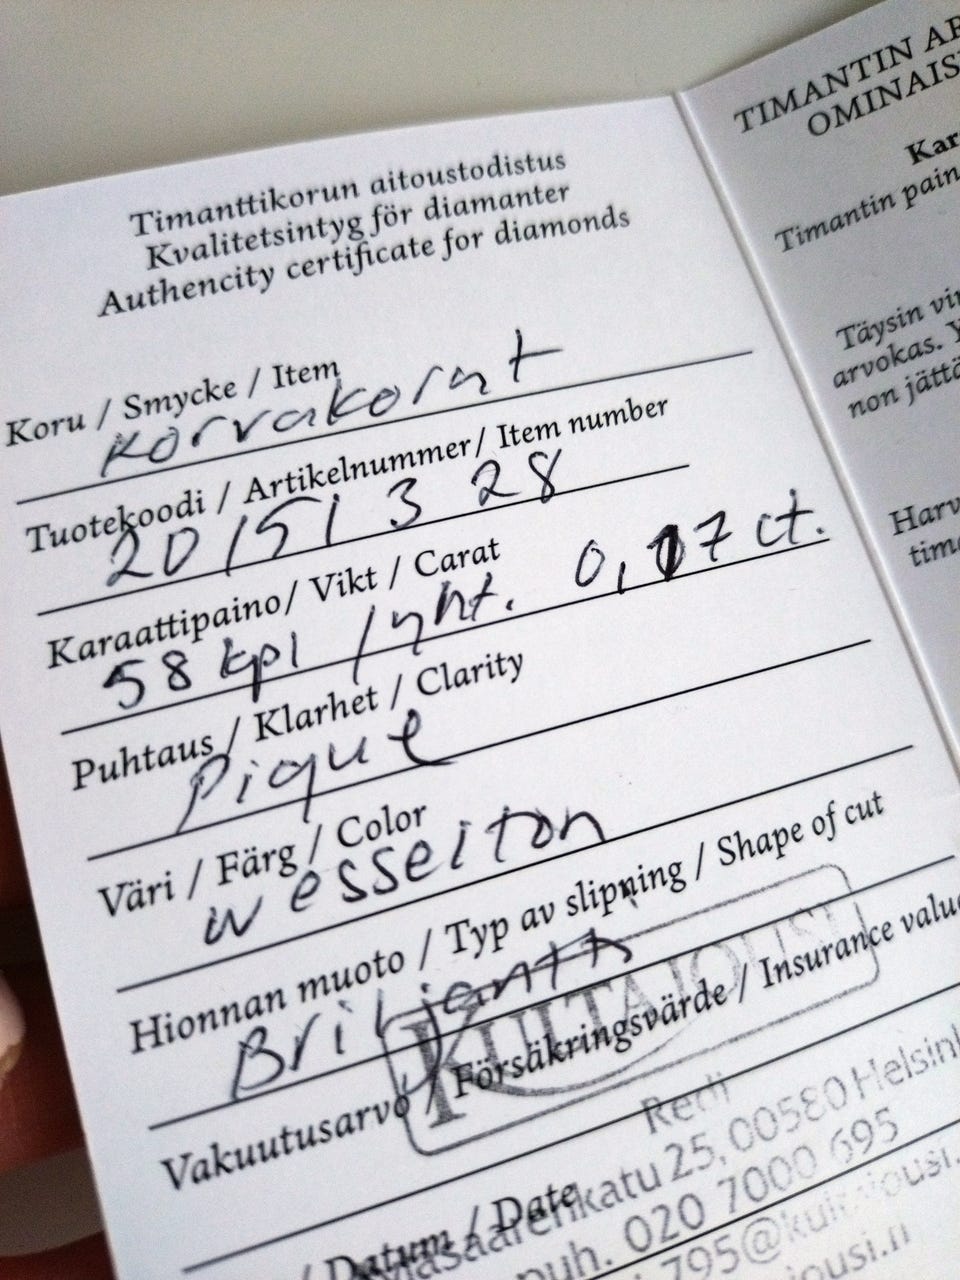 Timanttikorun aitoustodistus
Kvalitetsintyg för diamanter
Authencity certificate for diamonds
Koru / Smycke / Item
Korvakorut
Tuotekoodi / Artikelnummer/ Item number
20151328
Karaattipaino/ Vikt / Carat
58 kpl / yht. 0,17 ct.
Puhtaus / Klarhet / Clarity
Pique
Väri / Färg / Color
wesselton
Hionnan muoto / Typ av slipning / Shape of cut
Briljantti
KULTAJOUSI
Vakuutusarvo / Försäkringsvärde / Insurance value
Redi
25, 00580 Helsin
/ Datum / Date
puh. 020 7000 695
795@kultajousi.
jousi.fi
TIMANTIN AR
OMINAIS
Kar
Timantin pain
Täysin vär
arvokas.
non jättä
Harv
tima